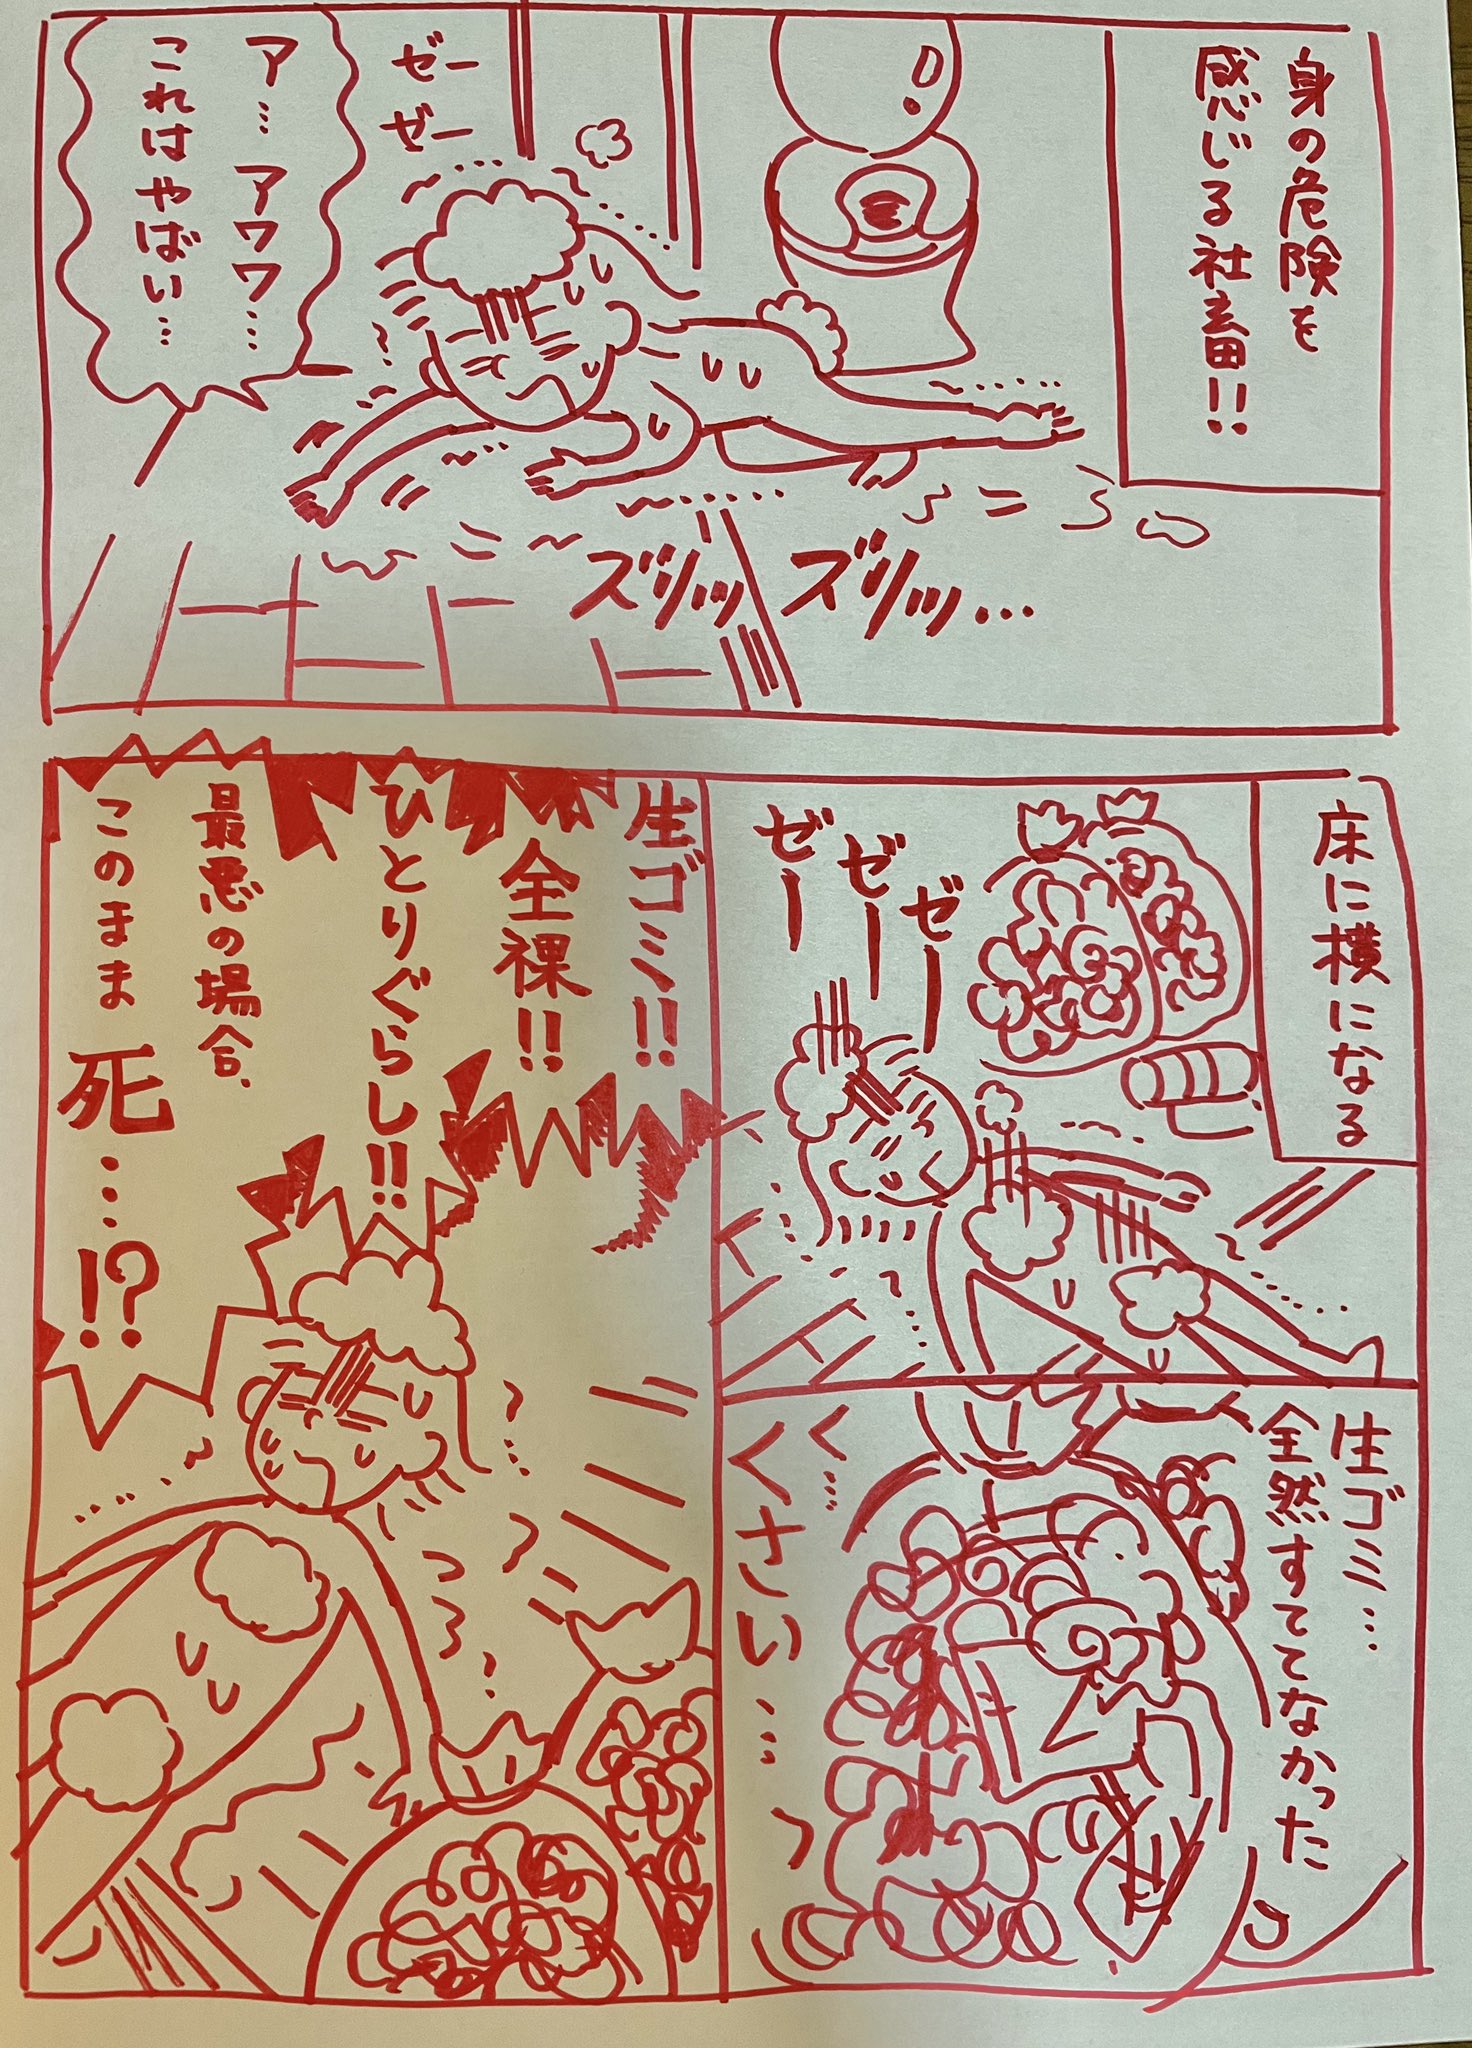 身の危険を
感じる社畜!!
ゼー
ゼー
ア… アワワ…
これはやばい…
ズリッ ズリッ…
床に横になる
ゼー
ゼー
ゼー
生ゴミ…
全然すててなかった
く…
くさい…
生ゴミ!!
全裸!!
ひとりぐらし!!
最悪の場合、
このまま 死…!?